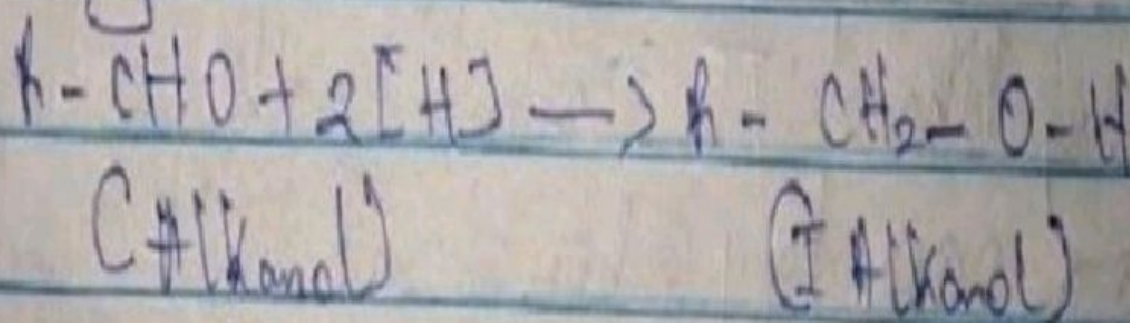 R-CHO + 2[H] —> R - CH₂ - O - H
(Alkanal) (I Alkanol)